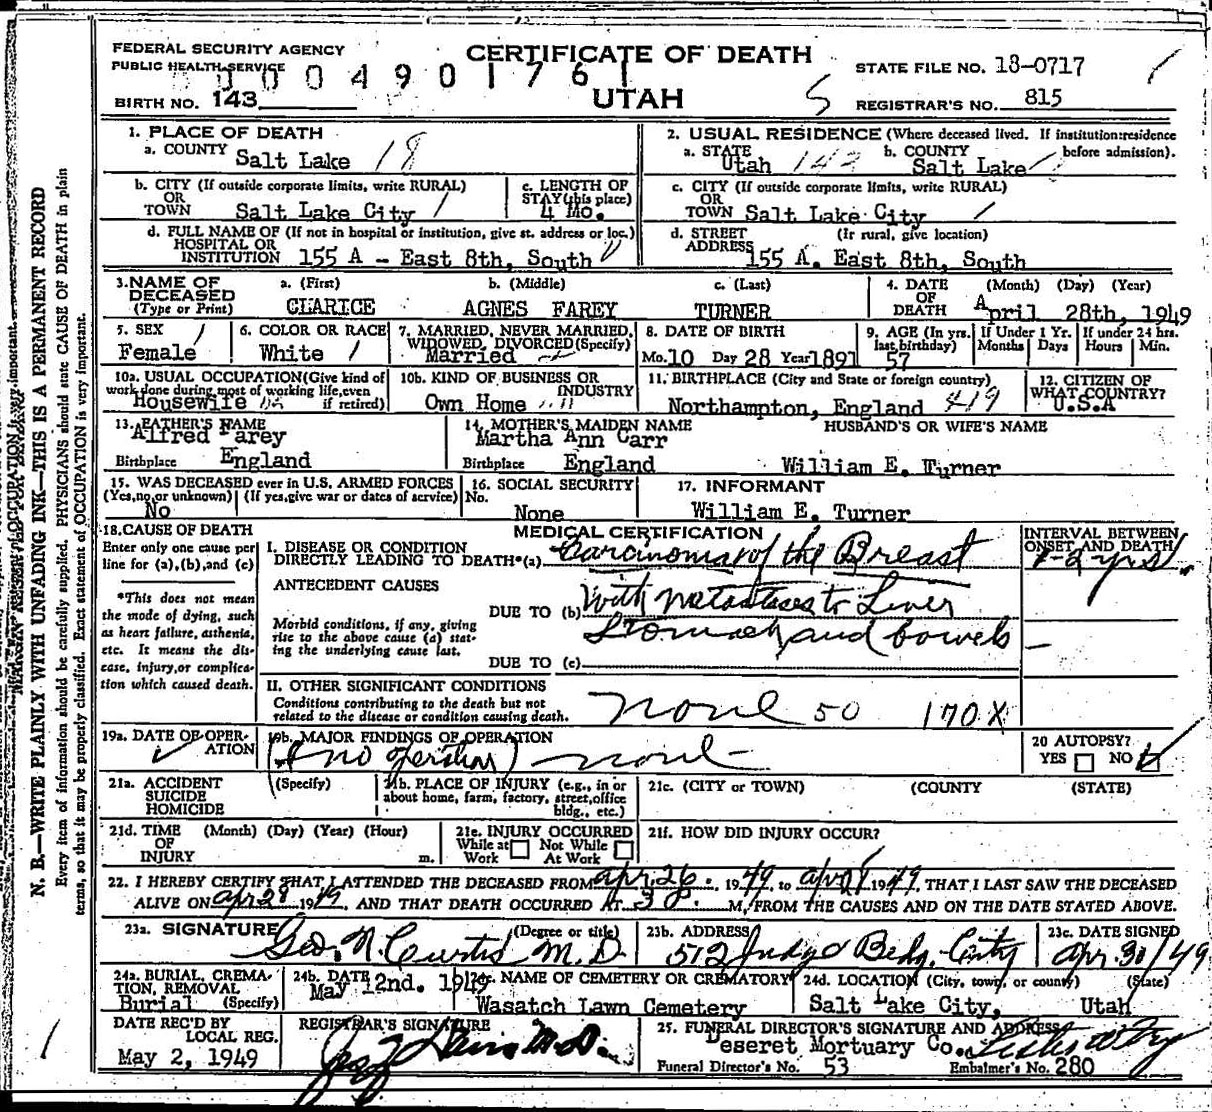 FEDERAL SECURITY AGENCY
PUBLIC HEALTH SERVICE
CERTIFICATE OF DEATH
STATE FILE NO. 18-0717
0004901761
BIRTH NO. 143
UTAH
REGISTRAR'S NO. 815
1. PLACE OF DEATH
a. COUNTY Salt Lake 18
2. USUAL RESIDENCE (Where deceased lived. If institution:residence before admission).
a. STATE Utah b. COUNTY Salt Lake
b. CITY (If outside corporate limits, write RURAL)
OR
TOWN Salt Lake City
c. LENGTH OF
STAY (this place)
4 Mo.
c. CITY (If outside corporate limits, write RURAL)
OR
TOWN Salt Lake City
d. FULL NAME OF (If not in hospital or institution, give st. address or loc.)
HOSPITAL OR
INSTITUTION 155 A - East 8th, South
d. STREET (If rural, give location)
ADDRESS 155 A. East 8th, South
3. NAME OF DECEASED (Type or Print)
a. (First) b. (Middle) c. (Last)
CLARICE AGNES FAREY TURNER
4. DATE OF DEATH (Month) (Day) (Year)
April 28th, 1949
5. SEX
Female
6. COLOR OR RACE
White
7. MARRIED, NEVER MARRIED, WIDOWED, DIVORCED (Specify)
Married
8. DATE OF BIRTH
Mo. 10 Day 28 Year 1891
9. AGE (In yrs. last birthday) If Under 1 Yr. Months Days If under 24 hrs. Hours Min.
57
10a. USUAL OCCUPATION (Give kind of work done during most of working life, even if retired)
Housewife
10b. KIND OF BUSINESS OR INDUSTRY
Own Home
11. BIRTHPLACE (City and State or foreign country)
Northampton, England 419
12. CITIZEN OF WHAT COUNTRY?
U.S.A
13. FATHER'S NAME
Alfred Farey
Birthplace England
14. MOTHER'S MAIDEN NAME
Martha Ann Carr
Birthplace England
HUSBAND'S OR WIFE'S NAME
William E. Turner
15. WAS DECEASED ever in U.S. ARMED FORCES
(Yes, no, or unknown) (If yes, give war or dates of service)
No
16. SOCIAL SECURITY No.
None
17. INFORMANT
William E. Turner
18. CAUSE OF DEATH
Enter only one cause per line for (a), (b), and (c)
*This does not mean the mode of dying, such as heart failure, asthenia, etc. It means the disease, injury, or complication which caused death.
MEDICAL CERTIFICATION
INTERVAL BETWEEN ONSET AND DEATH
I. DISEASE OR CONDITION
DIRECTLY LEADING TO DEATH*(a) Carcinoma of the Breast 1-2 yrs.
ANTECEDENT CAUSES
DUE TO (b) With metastases to Liver
Morbid conditions, if any, giving rise to the above cause (a) stating the underlying cause last.
Stomach and bowels
DUE TO (c)
II. OTHER SIGNIFICANT CONDITIONS
Conditions contributing to the death but not related to the disease or condition causing death.
none 50 170X
19a. DATE OF OPERATION
19b. MAJOR FINDINGS OF OPERATION
(no operation) none
20 AUTOPSY?
YES NO
21a. ACCIDENT SUICIDE HOMICIDE (Specify)
21b. PLACE OF INJURY (e.g., in or about home, farm, factory, street, office bldg., etc.)
21c. (CITY or TOWN) (COUNTY) (STATE)
21d. TIME OF INJURY (Month) (Day) (Year) (Hour) m.
21e. INJURY OCCURRED
While at Work Not While At Work
21f. HOW DID INJURY OCCUR?
22. I HEREBY CERTIFY THAT I ATTENDED THE DECEASED FROM apr. 26, 1949, to 1949, THAT I LAST SAW THE DECEASED
ALIVE ON apr 28 1949, AND THAT DEATH OCCURRED AT 3 P. M, FROM THE CAUSES AND ON THE DATE STATED ABOVE.
23a. SIGNATURE (Degree or title)
Geo. N. Curtis M.D.
23b. ADDRESS
512 Judge Bldg. City
23c. DATE SIGNED
Apr. 30/49
24a. BURIAL, CREMATION, REMOVAL (Specify)
Burial
24b. DATE
May 2nd. 1949
24c. NAME OF CEMETERY OR CREMATORY
Wasatch Lawn Cemetery
24d. LOCATION (City, town, or county) (State)
Salt Lake City, Utah
DATE REC'D BY LOCAL REG.
May 2, 1949
REGISTRAR'S SIGNATURE
M.D.
25. FUNERAL DIRECTOR'S SIGNATURE AND ADDRESS
Deseret Mortuary Co.
Funeral Director's No. 53 Embalmer's No. 280
N. B.—WRITE PLAINLY WITH UNFADING INK—THIS IS A PERMANENT RECORD
Every item of information should be carefully supplied. PHYSICIANS should state CAUSE OF DEATH in plain
terms, so that it may be properly classified. Exact statement of OCCUPATION is very important.